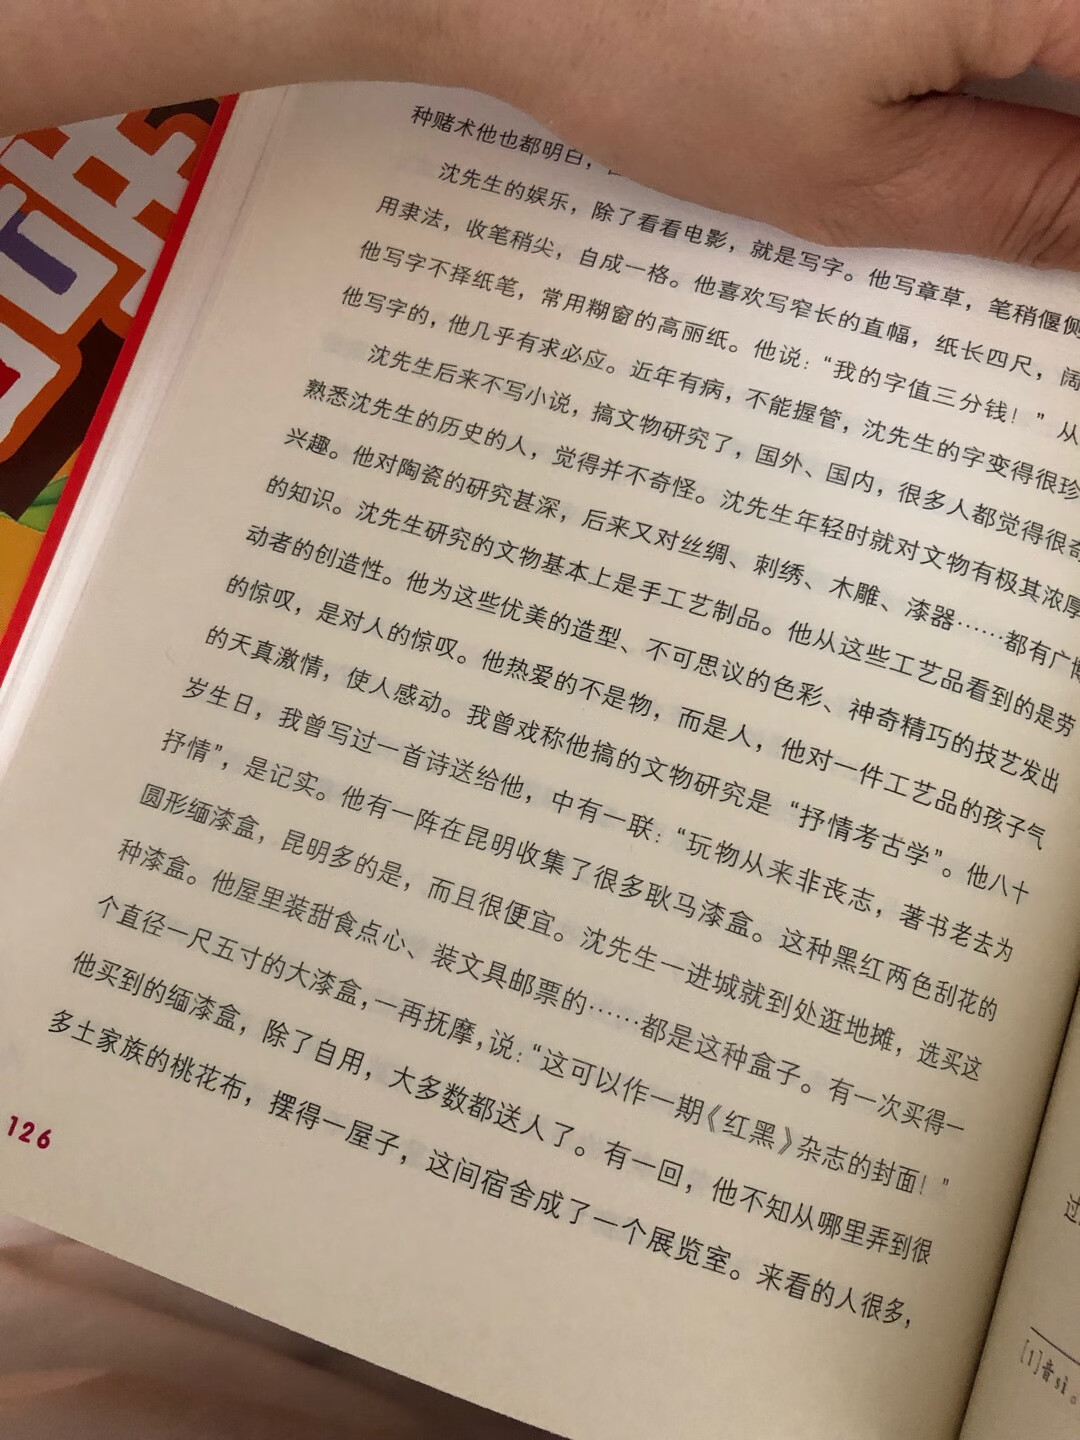 种赌术他也都明白，
沈先生的娱乐，除了看看电影，就是写字。他写章草，笔稍偃侧
用隶法，收笔稍尖，自成一格。他喜欢写窄长的直幅，纸长四尺，阔
他写字不择纸笔，常用糊窗的高丽纸。他说：“我的字值三分钱！”从
他写字的，他几乎有求必应。近年有病，不能握管，沈先生的字变得很珍
沈先生后来不写小说，搞文物研究了，国外、国内，很多人都觉得很奇
熟悉沈先生的历史的人，觉得并不奇怪。沈先生年轻时就对文物有极其浓厚
兴趣。他对陶瓷的研究甚深，后来又对丝绸、刺绣、木雕、漆器……都有广博
的知识。沈先生研究的文物基本上是手工艺制品。他从这些工艺品看到的是劳
动者的创造性。他为这些优美的造型、不可思议的色彩、神奇精巧的技艺发出
的惊叹，是对人的惊叹。他热爱的不是物，而是人，他对一件工艺品的孩子气
的天真激情，使人感动。我曾戏称他搞的文物研究是“抒情考古学”。他八十
岁生日，我曾写过一首诗送给他，中有一联：“玩物从来非丧志，著书老去为
抒情”，是记实。他有一阵在昆明收集了很多耿马漆盒。这种黑红两色刮花的
圆形缅漆盒，昆明多的是，而且很便宜。沈先生一进城就到处逛地摊，选买这
种漆盒。他屋里装甜食点心、装文具邮票的……都是这种盒子。有一次买得一
个直径一尺五寸的大漆盒，一再抚摩，说：“这可以作一期《红黑》杂志的封面！”
他买到的缅漆盒，除了自用，大多数都送人了。有一回，他不知从哪里弄到很
多土家族的桃花布，摆得一屋子，这间宿舍成了一个展览室。来看的人很多，
126
过
[1]音sì。